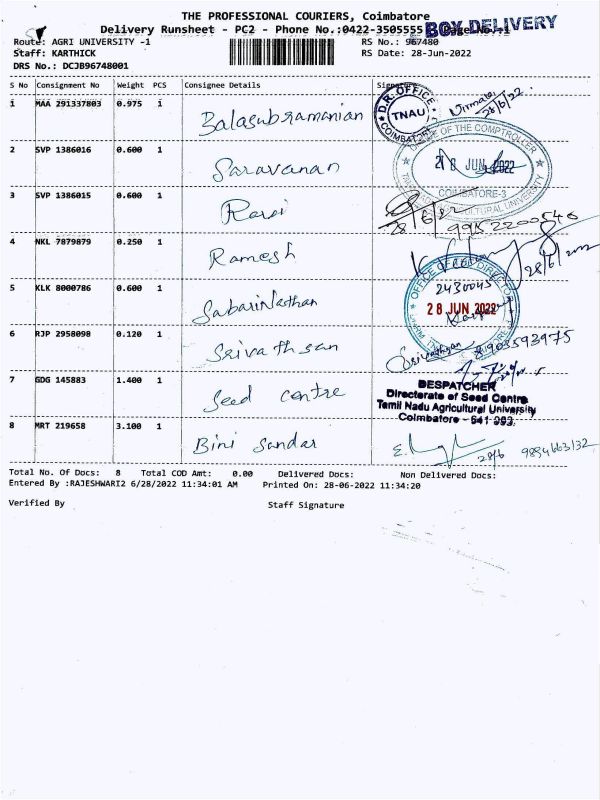 THE PROFESSIONAL COURIERS, Coimbatore
Delivery Runsheet - PC2 - Phone No.:0422-3505555 Page No.:1
BOY DELIVERY
Route: AGRI UNIVERSITY -1 RS No.: 967480
Staff: KARTHICK RS Date: 28-Jun-2022
DRS No.: DCJB96748001
S No Consignment No Weight PCS Consignee Details Signature
1 MAA 291337803 0.975 1 Balasubramanian Nirmala 28/6/22
D.R. OFFICE TNAU COIMBATORE
2 SVP 1386015 0.600 1 Saravanan
OFFICE OF THE COMPTROLLER
28 JUN 2022
COIMBATORE-3
3 SVP 1386016 0.600 1 Ravi
28/6/22 9952200546
4 NKL 7879879 0.250 1 Ramesh
28/6/2022
5 KLK 8000786 0.600 1 SabariNathan
2430045
28 JUN 2022
6 RJP 2958098 0.120 1 Srivathsan Srivathsan 8903593975
7 GDG 145883 1.400 1 Seed Centre
DESPATCHER
Directorate of Seed Centre
Tamil Nadu Agricultural University
Coimbatore - 641 003.
8 MRT 219658 3.100 1 Bini Sundar
28/6 9894663132
Total No. Of Docs: 8 Total COD Amt: 0.00 Delivered Docs: Non Delivered Docs:
Entered By :RAJESHWARI2 6/28/2022 11:34:01 AM Printed On: 28-06-2022 11:34:20
Verified By Staff Signature